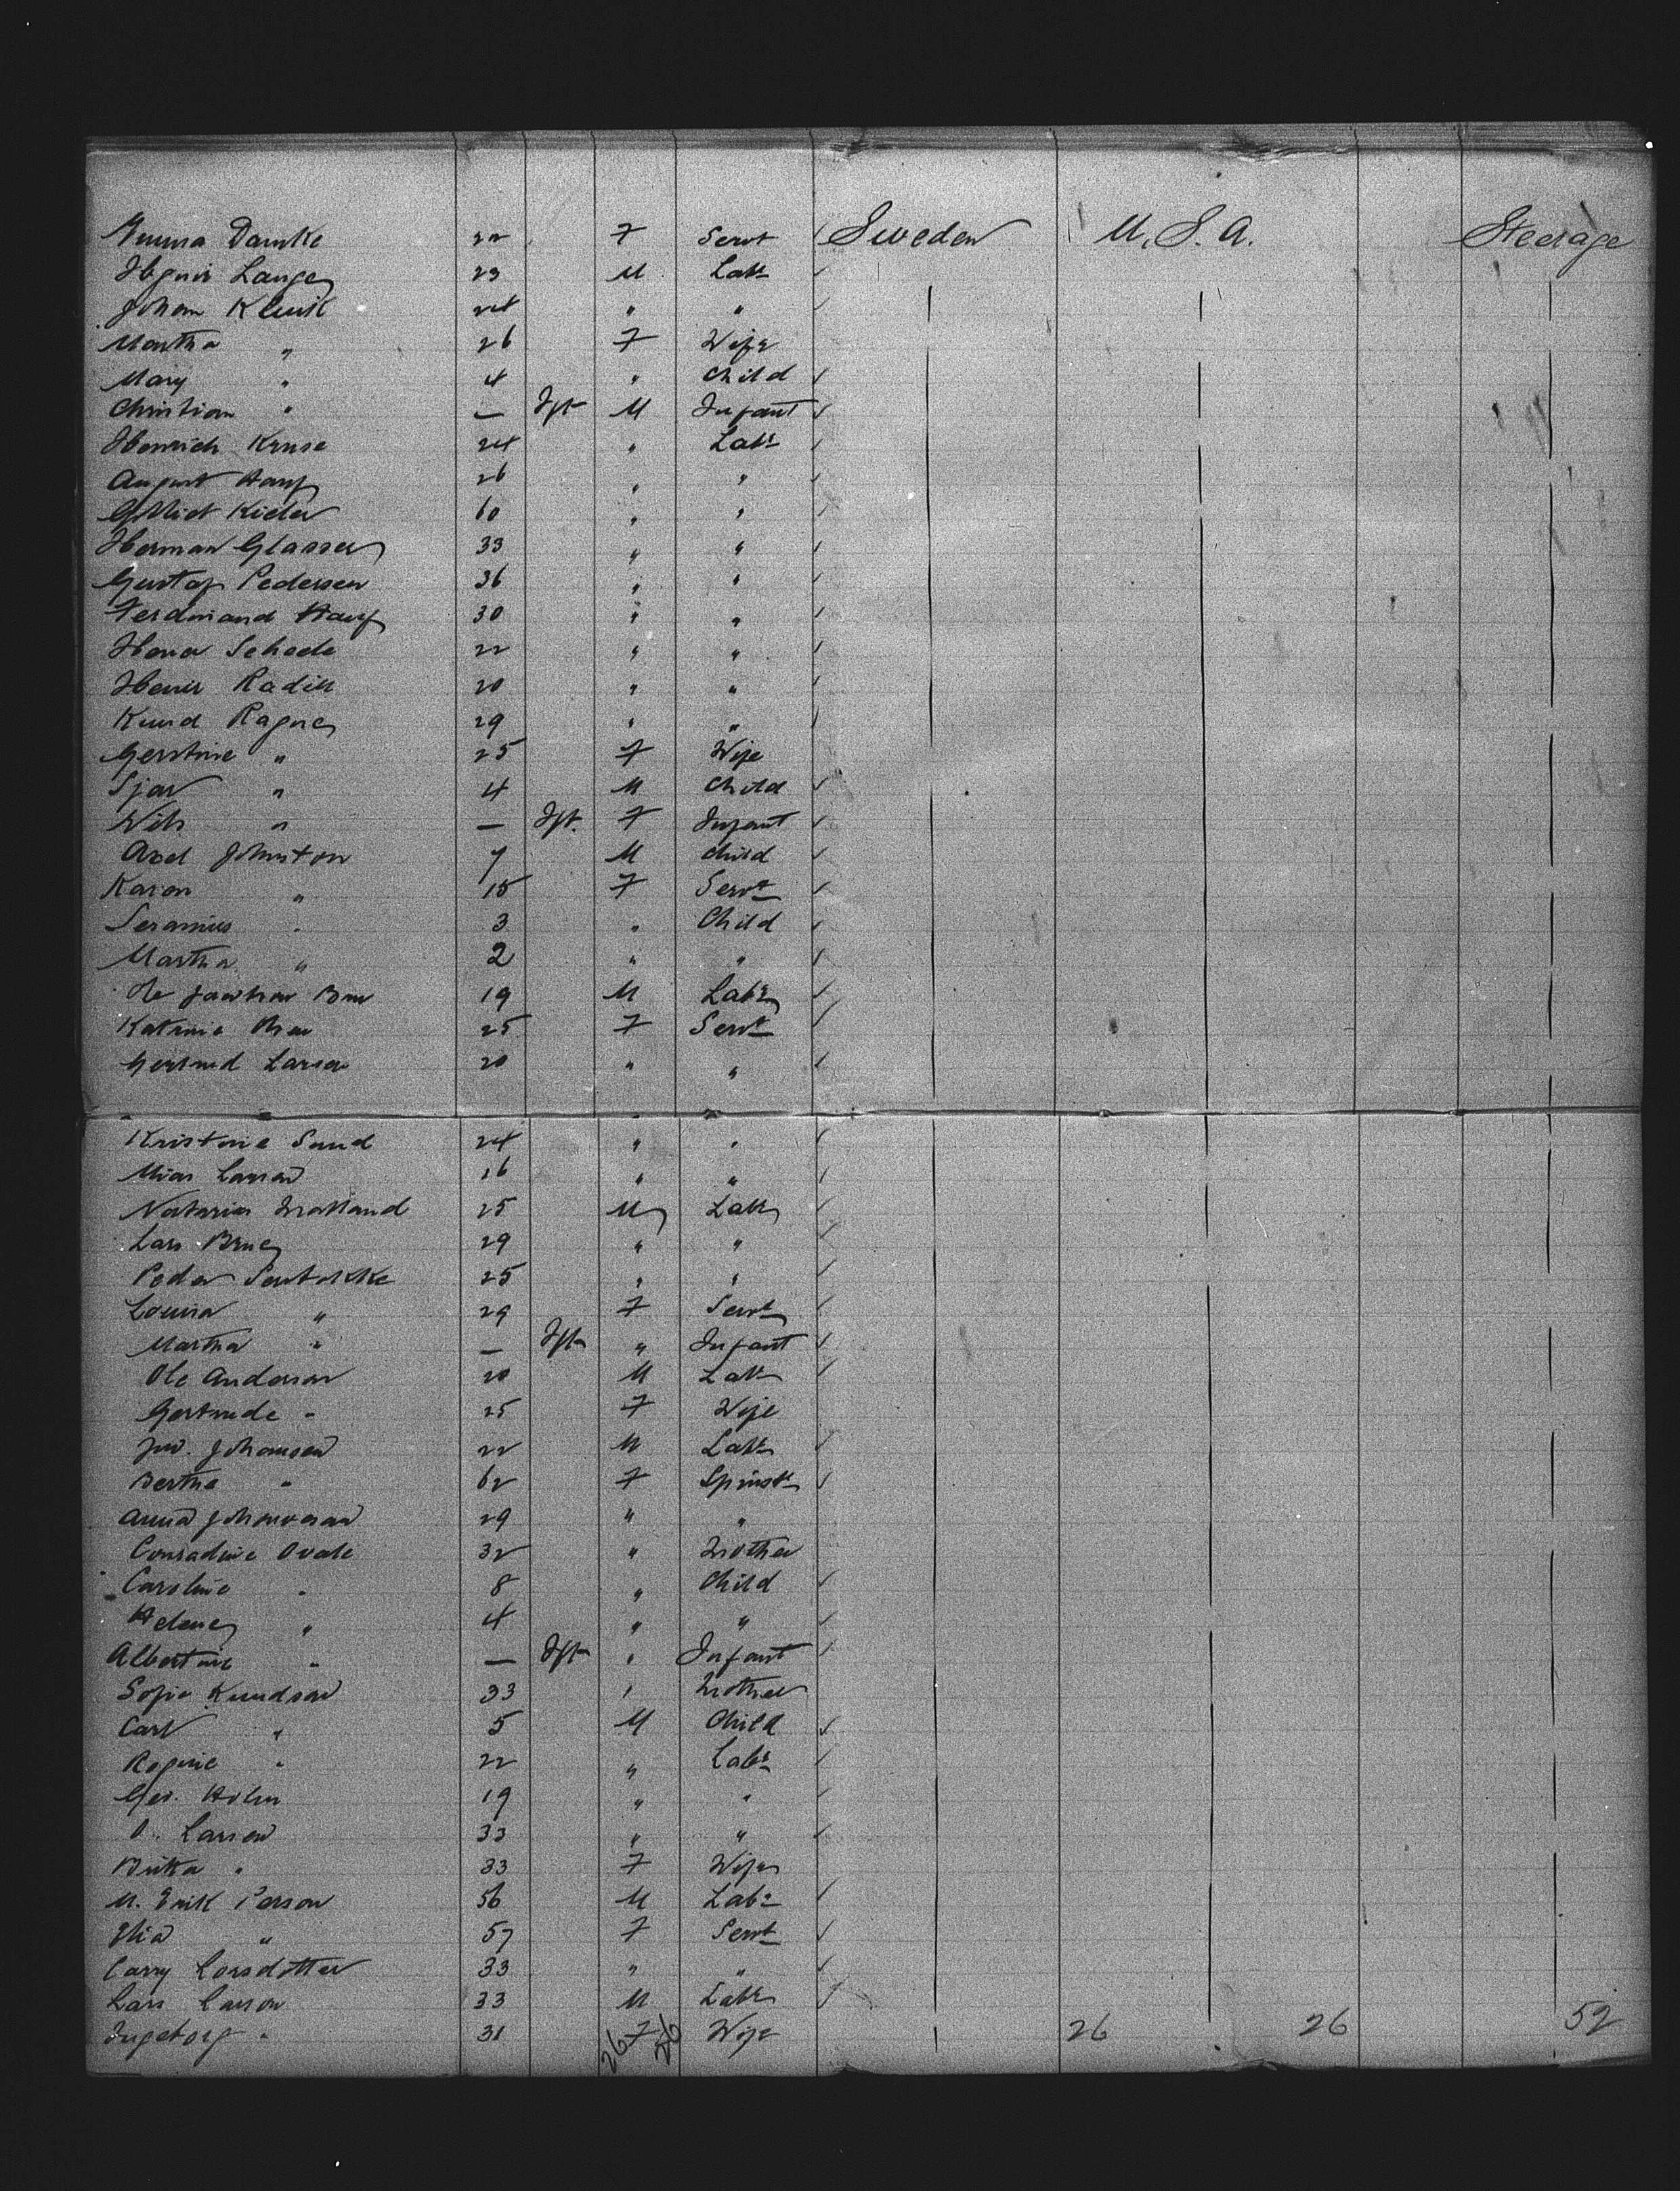 Emma Damke 22 F Servt Sweden U.S.A. Steerage
Lange 23 M Labr
Johan Klenk 24 " "
Martha " 26 F Wife
Mary " 4 " Child
Christian " — Ift M Infant
Heinrich Kruse 24 " Labr
August Harf 26 " "
Kieler 60 " "
Herman Glasser 33 " "
Gustaf Pedersen 36 " "
Ferdinand Harf 30 " "
Schade 22 " "
Radik 20 " "
Knud Ragne 29 " "
Gerstine " 25 F Wife
Sjar " 4 M Child
Wilh " — Ift. F Infant
Axel Johnston 7 M Child
Karon " 15 F Servt
" 3 " Child
Martha " 2 " "
Ole 19 M Labr
Katrine 25 F Servt
Gertrud Larsen 20 " "
Kristine Sund 24 " "
Larsen 16 " "
25 M Labr
Lars Brue 29 " "
Peder 25 " "
Louisa " 29 F Servt
Martha " — Ift " Infant
Ole Anderson 20 M Labr
Gertrude " 25 F Wife
Jno. Johansen 22 M Labr
Berthe " 62 F Spinstr
Anna 29 " "
Conradine Ovale 32 " Mother
Caroline " 8 " Child
Helene " 4 " "
Albertine " — Ift " Infant
Sofie Knudsen 33 " Mother
Carl " 5 M Child
Regine " 22 " Labr
Geo. Holm 19 " "
O. Larsen 33 " "
Britta " 33 F Wife
M. Erik Person 56 M Labr
" 57 F Servt
Carry Larsdotter 33 " "
Lars Larson 33 M Labr
Ingeborg " 31 F Wife 26 26 52
26 26